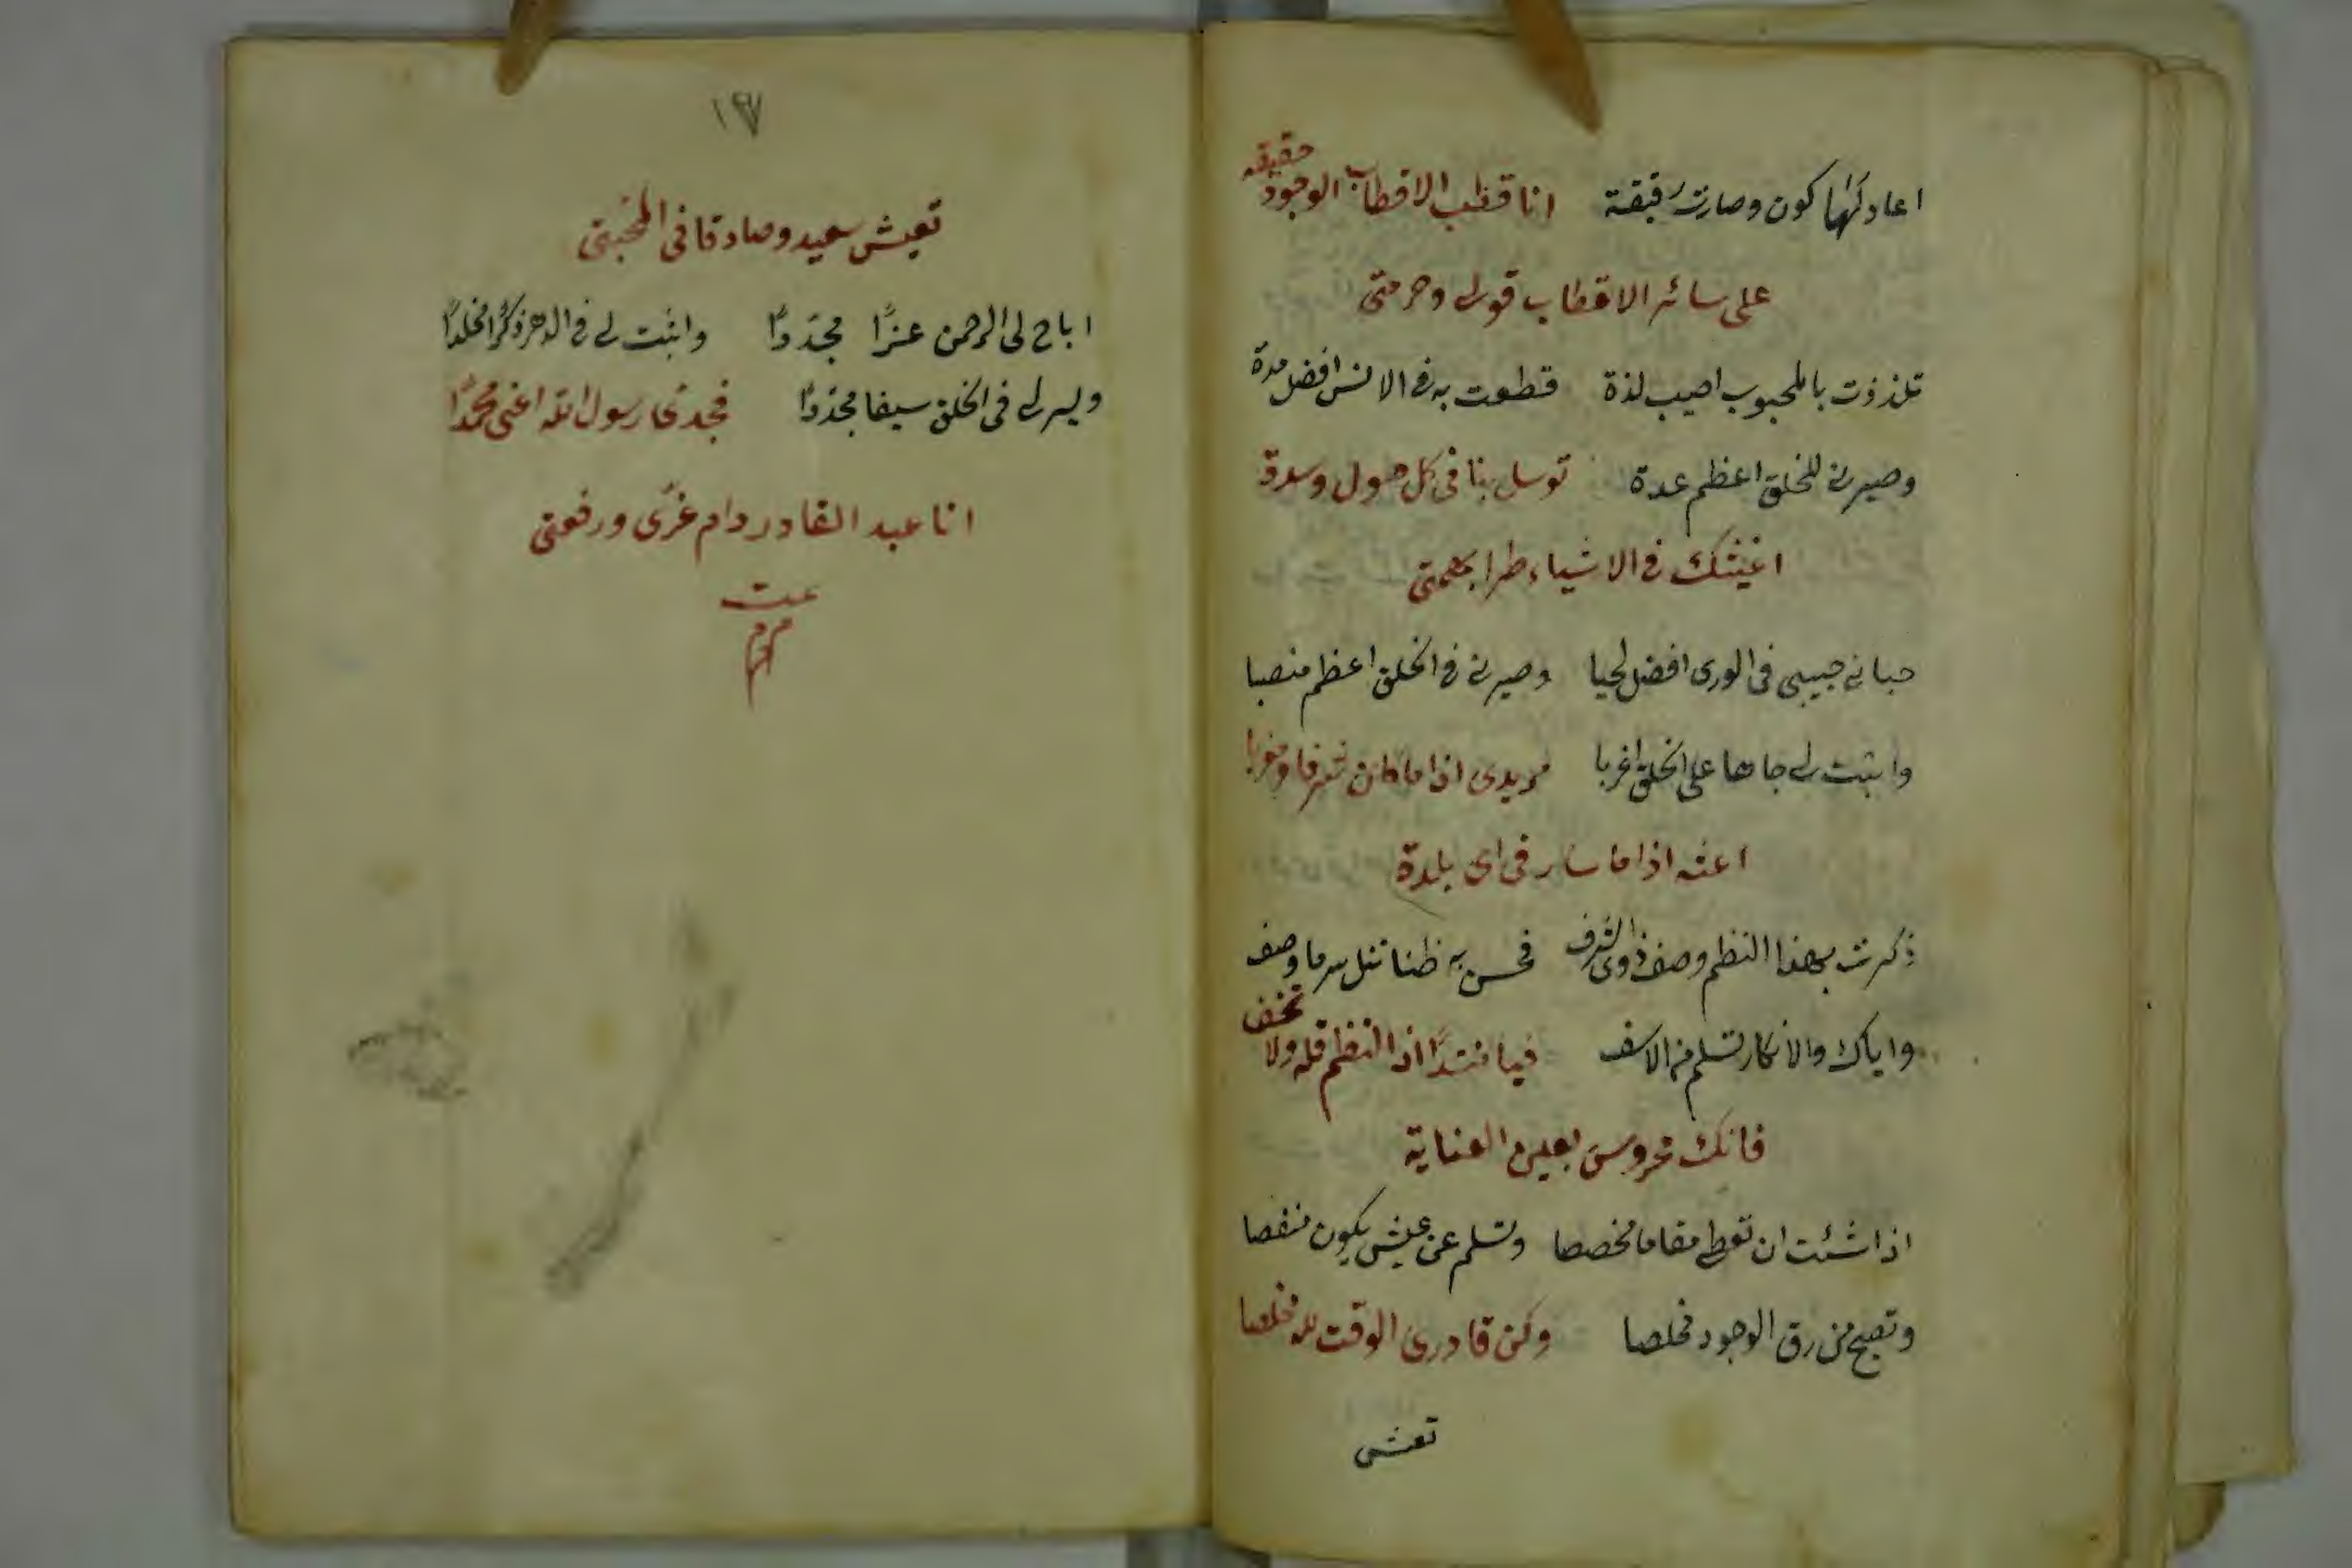 اعاد لها كون وصارت رقيقة انا قطب الاقطاب الوجود حقيقه
على سائر الاقطاب قولى وحرمتى
تلذذت بالمحبوب اصيب لذة قطعت به فى الانس افضل مدة
وصيرنى للخلق اعظم عدة توسل بنا فى كل هول وسدة
اغيثك فى الاشياء طرا بهمتى
حبانى حبيبى فى الورى افضل لحيا وصيرنى فى الخلق اعظم منصبا
واثبت لى جاها على الخلق اغربا مريدى اذا ما كان شرقا ومغربا
اغثه اذا ما سار فى اى بلدة
ذكرت بهذا النظم وصف ذوى الشرف فحسن به ظنا تنل سر ما وصف
واياك والانكار تسلم من الاسف فيا منشدًا اذا النظم قله ولا تخف
فانك محروس بعين العناية
اذا شئت ان تعطى مقاما مخصصا وتسلم عن عيش يكون منغصا
وتصبح من رق الوجود مخلصا وكن قادرى الوقت لله مخلصا
تعش
١٩٧
تعيش سعيد وصادقا فى المحبتى
اباح لى الرحمن عزًّا مجددًا واثبت لى فى الدهر ذكرًا مخلدًا
ويسر لى فى الخلق سيفا مجددًا فجدى رسول الله اعنى محمدًا
انا عبد القادر دام عزى ورفعتى
تمت